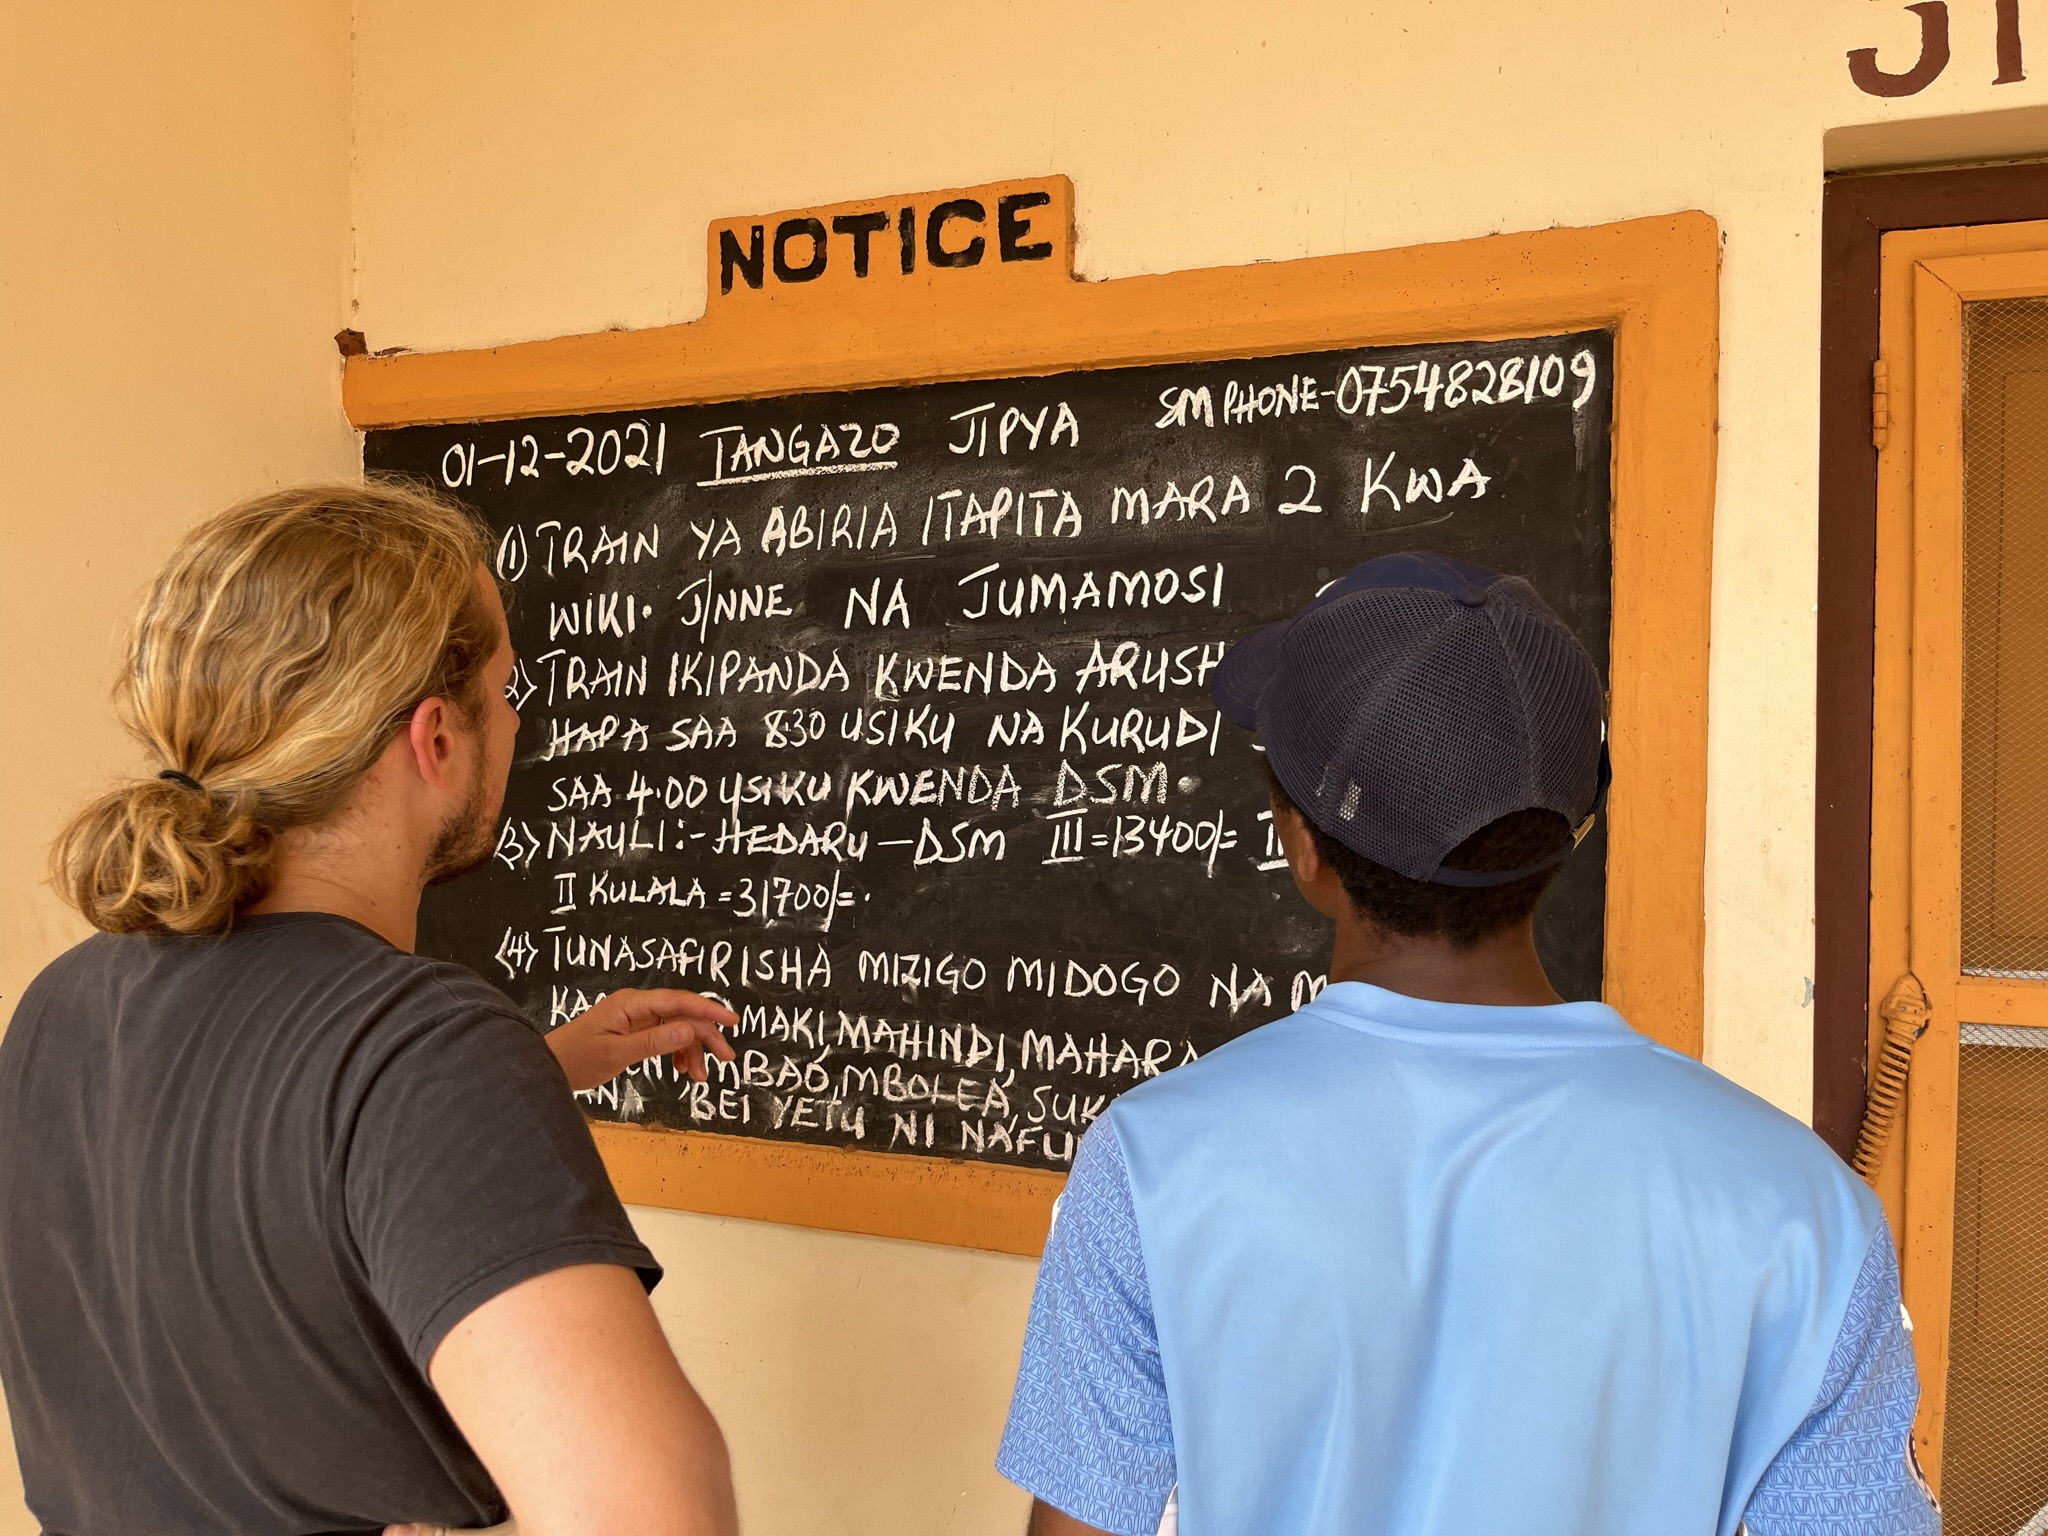 JI
NOTICE
01-12-2021 TANGAZO JIPYA SM PHONE-0754828109
(1) TRAIN YA ABIRIA ITAPITA MARA 2 KWA
WIKI. J/NNE NA JUMAMOSI
2) TRAIN IKIPANDA KWENDA ARUSH
HAPA SAA 8:30 USIKU NA KURUDI
SAA 4.00 USIKU KWENDA DSM.
(3) NAULI:- HEDARU - DSM III = 13400/=
II KULALA = 31700/=.
(4) TUNASAFIRISHA MIZIGO MIDOGO NA M
KA MAKI, MAHINDI, MAHARA
MBAO, MBOLEA, SUK
ANA 'BEI YETU NI NAFU